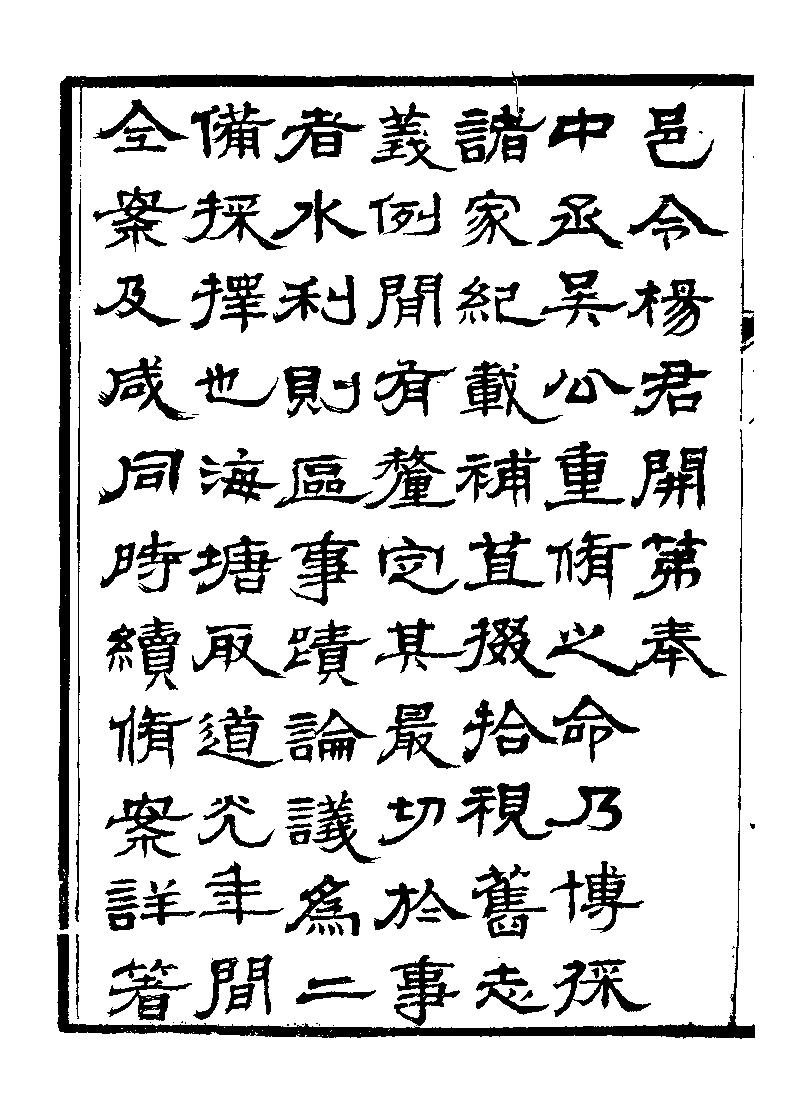 邑令楊君開第奉
中丞吳公重脩之命乃博採
諸家紀載補苴掇拾視舊志
義例間有釐定其最切於事
者水利則區事蹟論議為二
備採擇也海塘取道光年間
全案及咸同時續脩案詳著